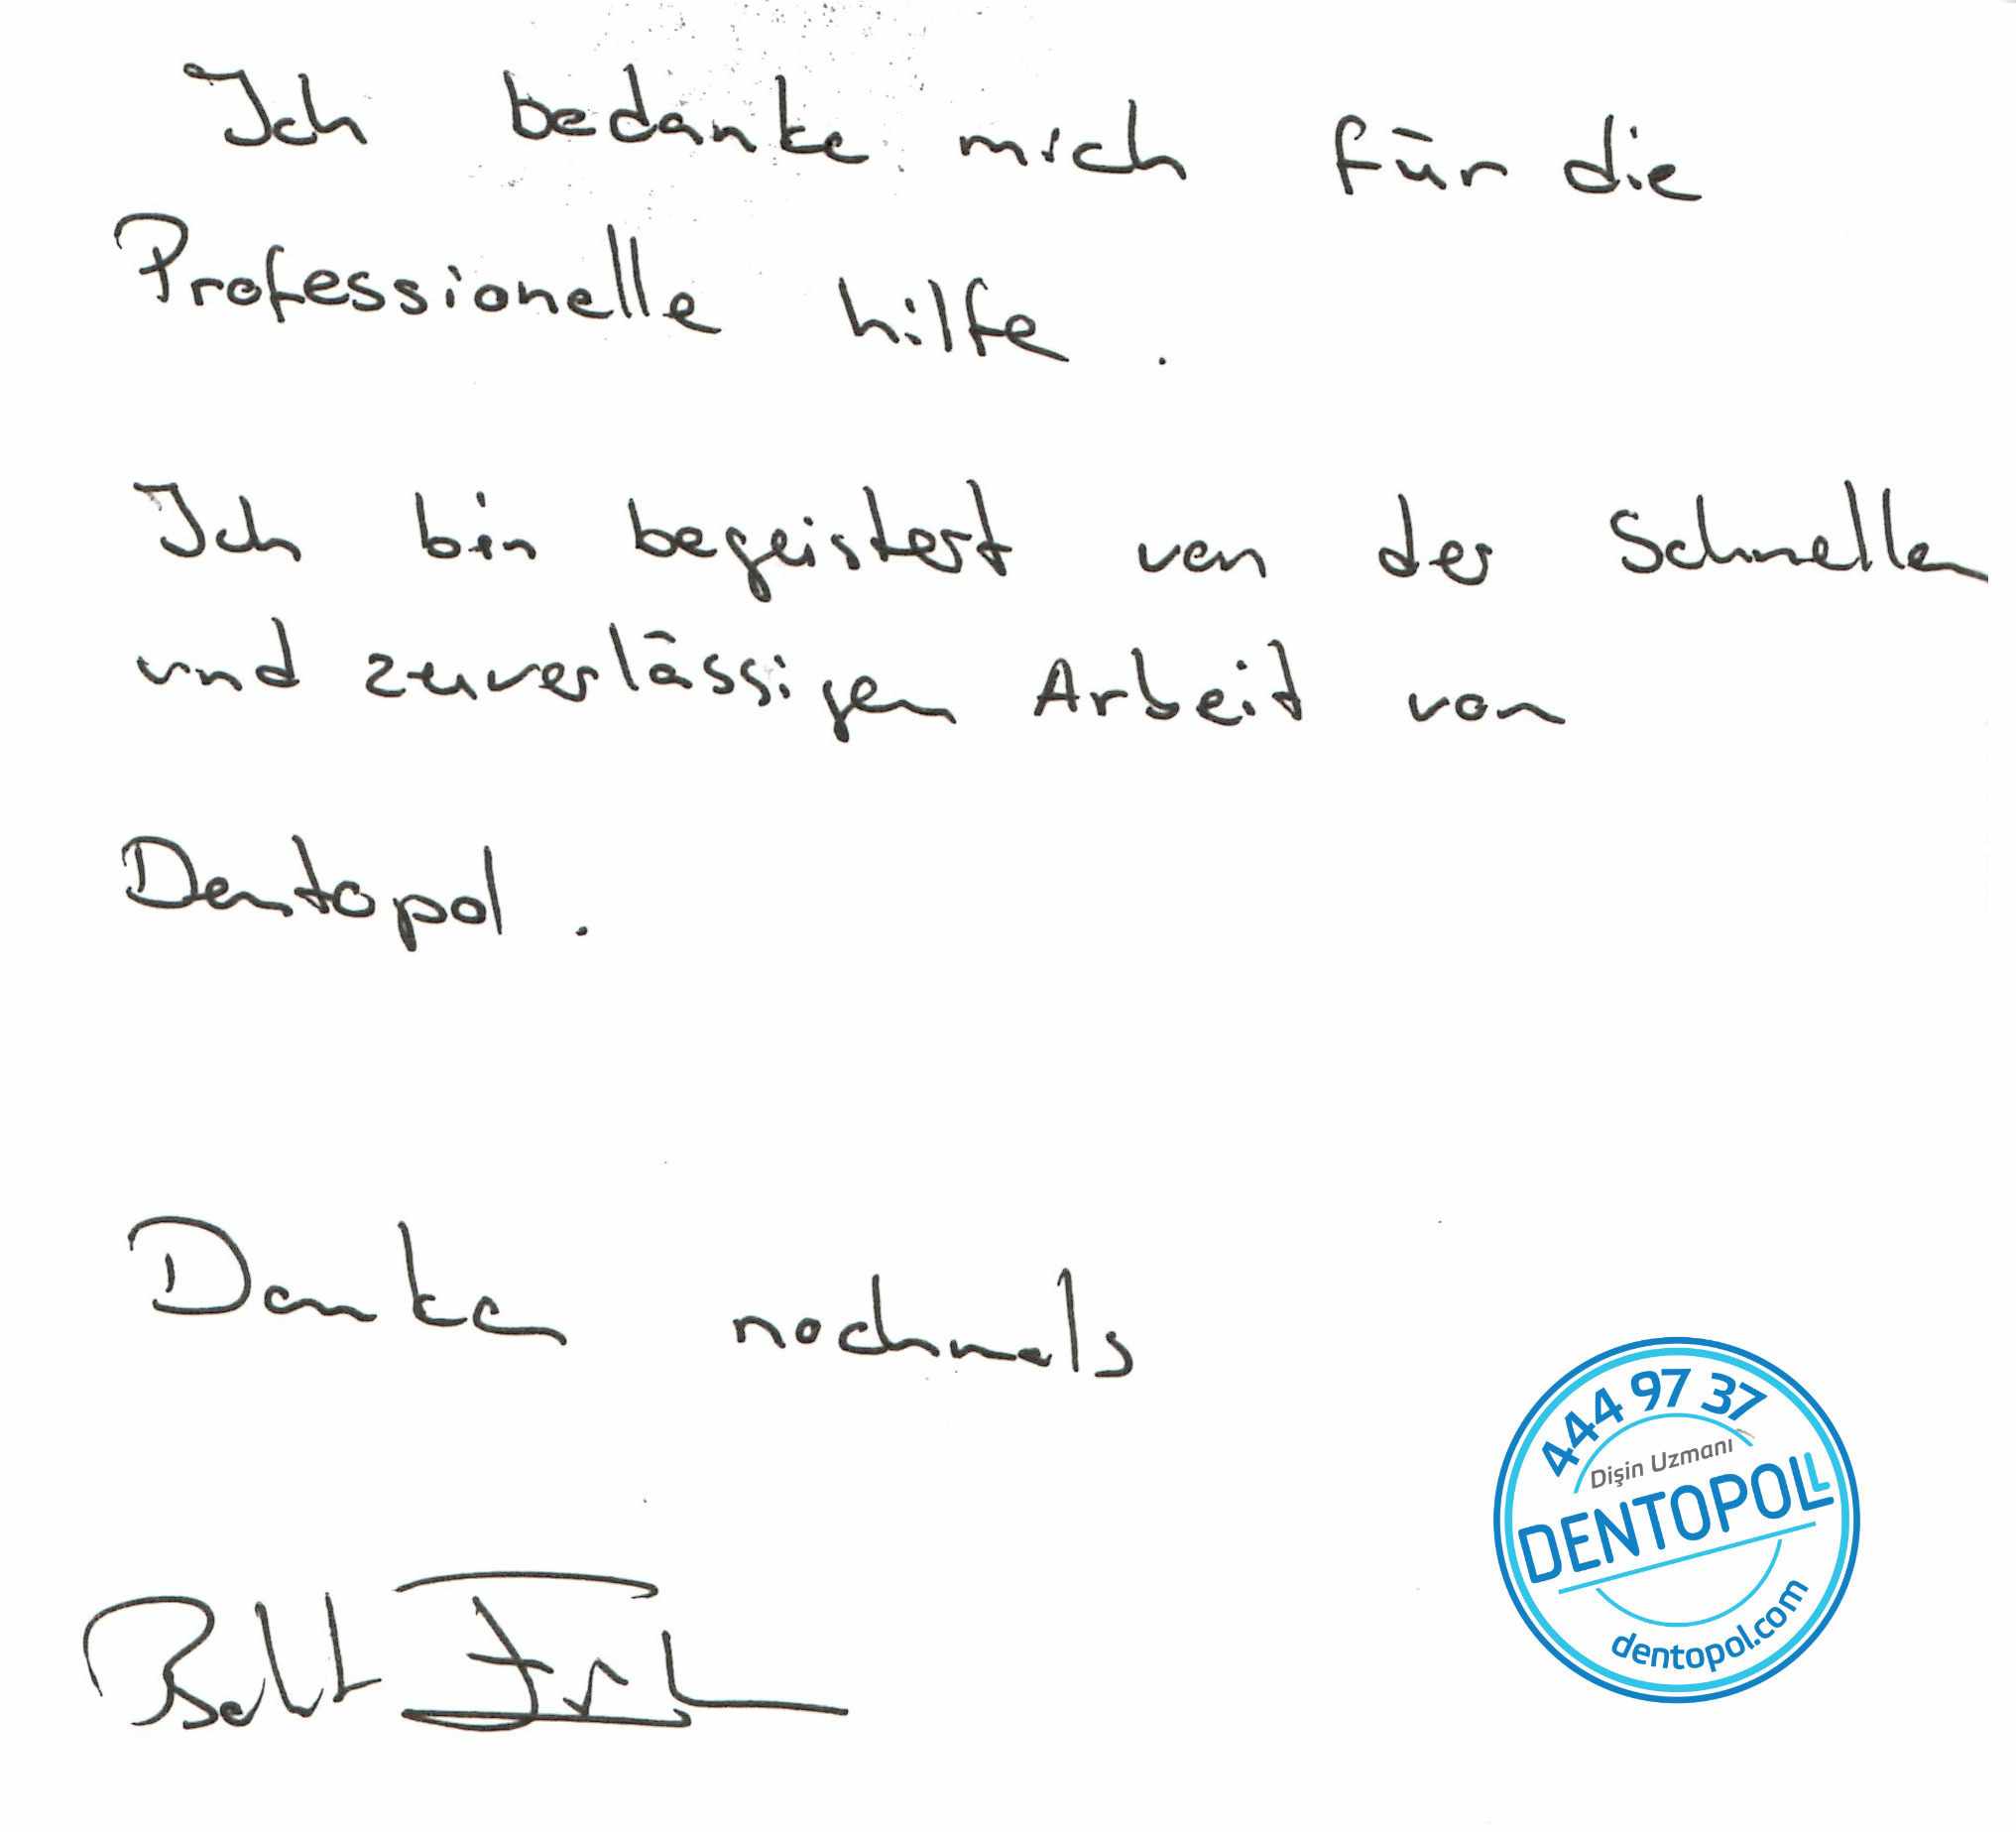 Ich bedanke mich für die
Professionelle hilfe.
Ich bin begeistert von der Schnellen
und zuverlässigen Arbeit von
Dentopol.
Danke nochmals
444 97 37
Dişin Uzmanı
DENTOPOL
dentopol.com